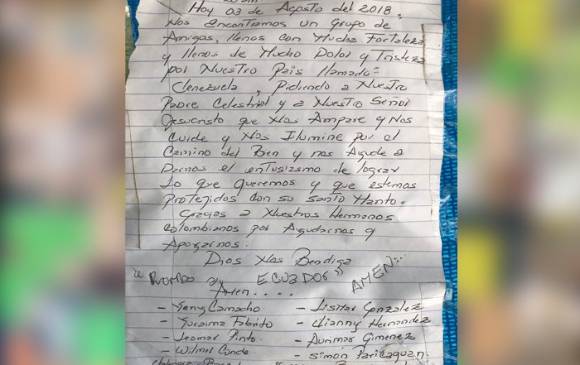 Hoy 03 de Agosto del 2018,
Nos encontramos un Grupo de
Amigas, llenos con Mucha Fortaleza
y llenos de Mucho Dolor y Tristeza
por Nuestro Pais llamado-
Venezuela, Pidiendo a Nuestro
Padre Celestrial y a Nuestro Señor
Jesucristo que Nos Ampare y Nos
Cuide y Nos Ilumine por el
Camino del Bien y nos Ayude a
Darnos el entusizsmo de lograr
Lo que Queremos y que estemos
Protejidos con su santo Manto.
Gracias a Nuestros Hermanos
Colombianos por Ayudarnos y
Apoyarnos.
Dios Nos Bendiga
"Rumbo a ECUADOR" AMEN...
Amen....
- Yeny Camacho - Lismar Gonzalez
- Yuraima Fabrito - Wianny Hernandez
- Leomar Pinto - Aunmar Gimenez
- Wilmer Conde - Simon Paricaguan